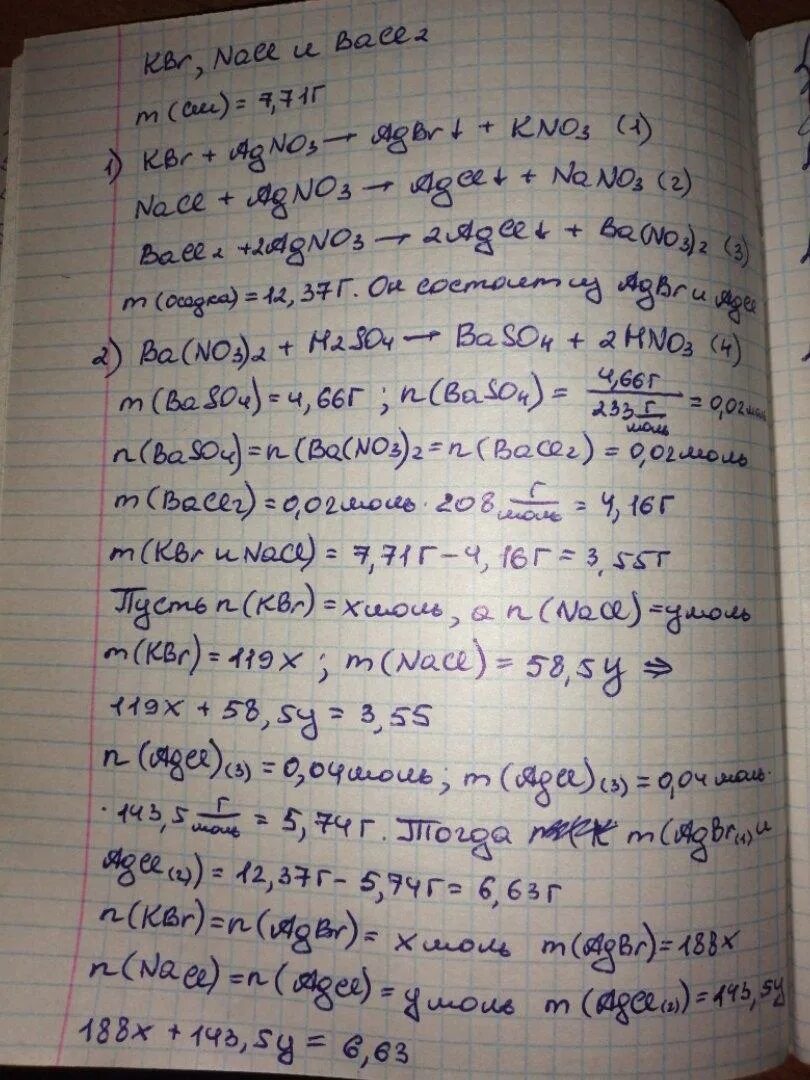 KBr, NaCl и BaCl2
m(см) = 7,71г
1) KBr + AgNO3 → AgBr↓ + KNO3 (1)
NaCl + AgNO3 → AgCl↓ + NaNO3 (2)
BaCl2 + 2AgNO3 → 2AgCl↓ + Ba(NO3)2 (3)
m(осадка) = 12,37г. Он состоит из AgBr и AgCl
2) Ba(NO3)2 + H2SO4 → BaSO4 + 2HNO3 (4)
m(BaSO4) = 4,66г ; n(BaSO4) = 4,66г / 233 г/моль = 0,02моль
n(BaSO4) = n(Ba(NO3)2 = n(BaCl2) = 0,02моль
m(BaCl2) = 0,02моль · 208 г/моль = 4,16г
m(KBr и NaCl) = 7,71г – 4,16г = 3,55г
Пусть n(KBr) = x моль, а n(NaCl) = y моль
m(KBr) = 119x ; m(NaCl) = 58,5y ⇒
119x + 58,5y = 3,55
n(AgCl)(3) = 0,04моль; m(AgCl)(3) = 0,04моль·
· 143,5 г/моль = 5,74г. Тогда m(AgBr(1) и
AgCl(2)) = 12,37г – 5,74г = 6,63г
n(KBr) = n(AgBr) = x моль m(AgBr) = 188x
n(NaCl) = n(AgCl) = y моль m(AgCl(2)) = 143,5y
188x + 143,5y = 6,63